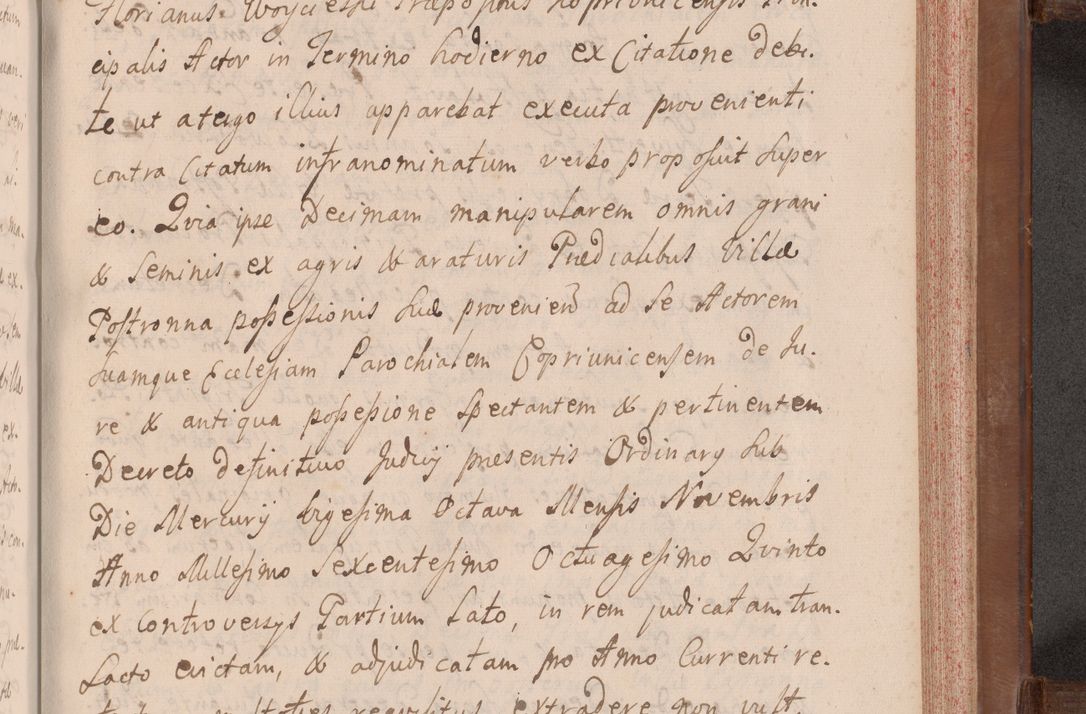 Florianus Woycieski Præpositus Kopriunicensis Prin.
cipalis Actor in Termino hodierno ex Citatione debi.
te ut a tergo illius apparebat executa provenienti
contra Citatum infranominatum verbo proposuit super
eo. Qvia ipse Decimam manipularem omnis grani
& seminis ex agris & araturis Prædialibus Villæ
Postronna possessionis suæ provenien̄ ad se Actorem
suamque Ecclesiam Parochialem Copriunicensem de Ju.
re & antiqua possessione spectantem & pertinentem
Decreto definitivo Judicij præsentis Ordinarij sub
Die Mercurij vigesima Octava Mensis Novembris
Anno Millesimo Sexcentesimo Octuagesimo Qvinto
ex Controversijs Partium Lato, in rem judicatam tran.
sacto evictam, & adjudicatam pro Anno Currenti re.
requisitus extradere non vult.